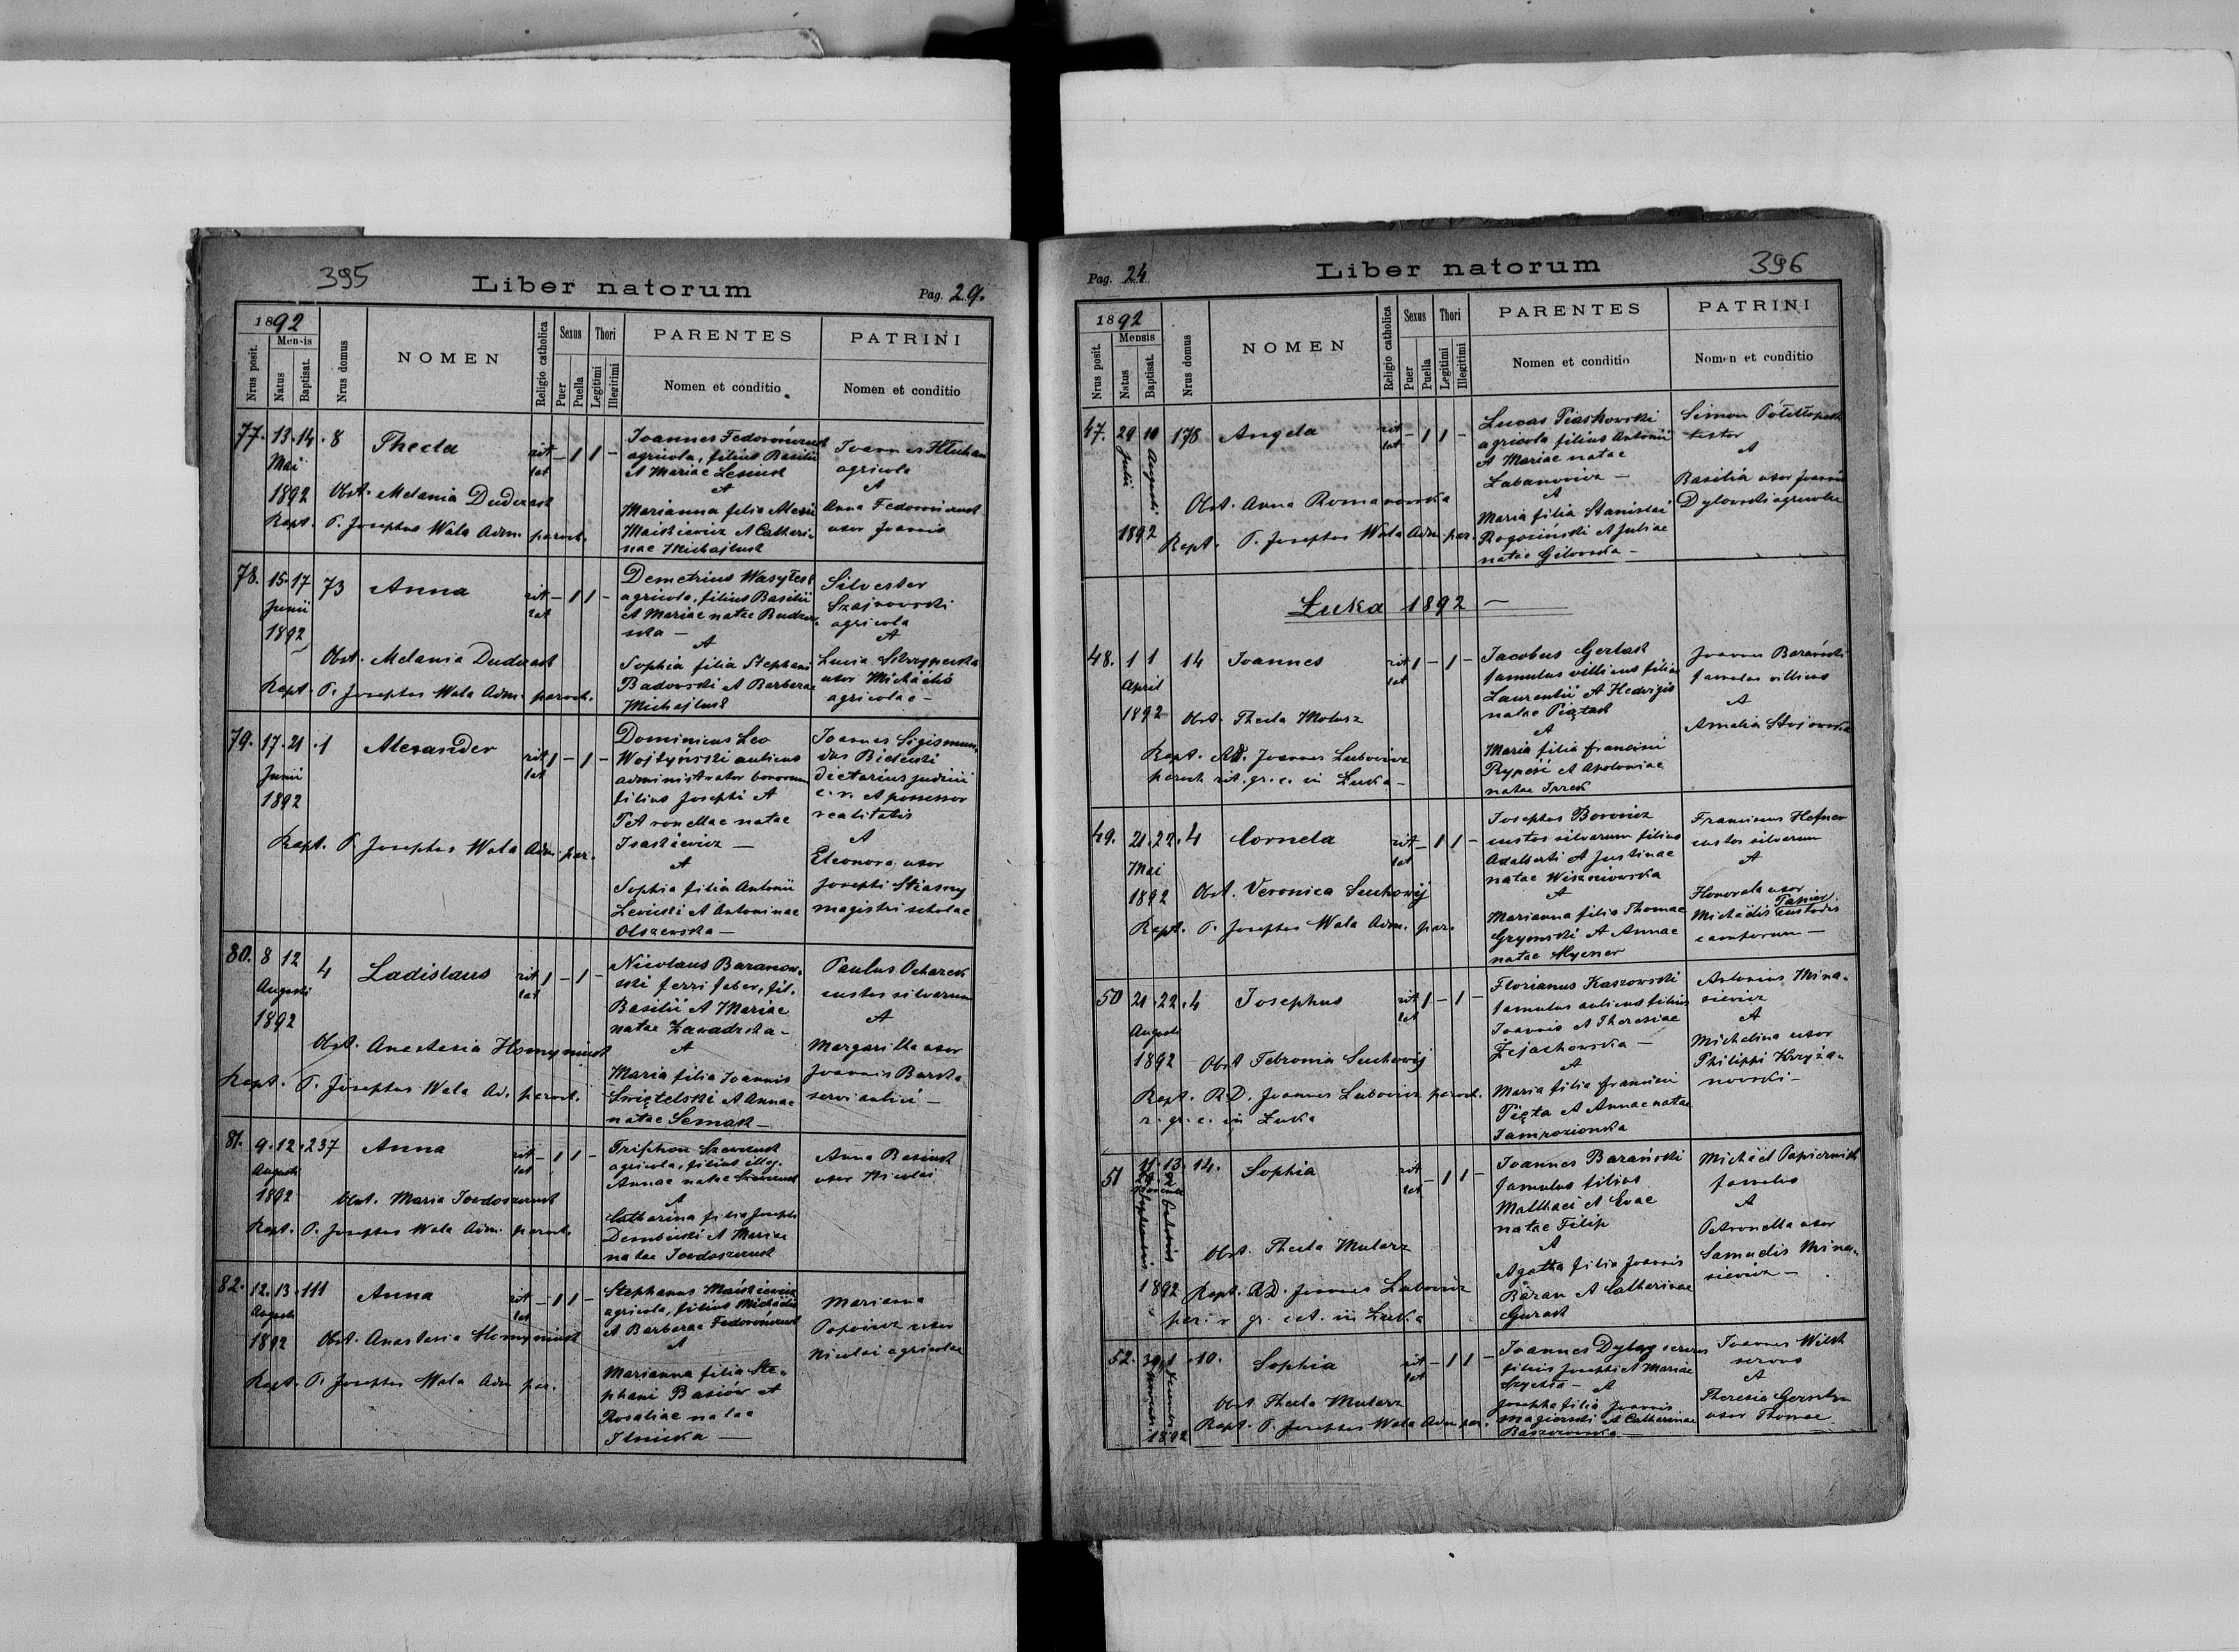 395
Liber natorum
Pag. 29.
1892
Mensis
Nrus posit.
Natus
Baptisat.
Nrus domus
NOMEN
Religio catholica
Sexus
Puer
Puella
Thori
Legitimi
Illegitimi
PARENTES
Nomen et conditio
PATRINI
Nomen et conditio
77. 13. 14. 8 Thecla rit lat – 1 1 –
Mai
1892 Obst. Melania Duderask
Bapt. P. Josephus Wala Adm. paroch.
Joannes Fedorończuk
agricola, filius Basilii
et Mariae Lesiuk
et
Marianna filia Alexii
Maickiewicz et Catheri-
nae Michajluk
Joannes
agricola
et
Anna Fedorończuk
uxor Joannis
78. 15. 17 73 Anna rit lat – 1 1 –
Junii
1892
Obst. Melania Duderask
Bapt. P. Josephus Wala Adm. paroch.
Demetrius
agricola, filius Basilii
et Mariae natae
ska –
et
Sophia filia Stephani
Badowski et Barbarae
Michajluk
Silvester
Szajnowski
agricola
et
Lucia
uxor Michaelis
agricolae –
79. 17. 21 1 Alexander rit lat 1 – 1 –
Junii
1892
Bapt. P. Josephus Wala Adm. par.
Dominicus Leo
Wojtyński aulicus
administrator bonorum
filius Josephi et
Petronellae natae
Isakiewicz –
et
Sophia filia Antonii
Lewicki et Antoninae
Olszewska –
Joannes Sigismun-
dus Bielecki
dietarius judicii
c. r. et possessor
realitatis
et
Eleonora uxor
Josephi
magistri scholae
80. 8 12 4 Ladislaus rit lat 1 – 1 –
Augusti
1892
Obst. Anastasia Homyniuk
Bapt. P. Josephus Wala Ad. paroch.
Nicolaus Baranow-
ski ferri faber, fil.
Basilii et Mariae
natae Zawadzka –
et
Maria filia Joannis
Świętelski et Annae
natae Semak –
Paulus Ocharek
custos silvarum
et
Margaritta uxor
Joannis Burska
servi aulici –
81. 9. 12. 237 Anna rit lat – 1 1 –
Augusti
1892 Obst. Maria Iowdoszczuk
Bapt. P. Josephus Wala Adm. paroch.
Triphon Szewczuk
agricola, filius illeg.
Annae natae Szewczuk
et
Catharina filia Josephi
Dembicki et Mariae
natae Iowdoszczuk
Anna Basiuk
uxor Nicolai
82. 12. 13. 111 Anna rit lat – 1 1 –
Augusti
1892 Obst. Anastasia Homyniuk
Bapt. P. Josephus Wala Adm par.
Stephanus Maickiewicz
agricola, filius Michaelis
et Barbarae Fedorończuk
et
Marianna filia Ste-
phani Basiów et
Rosaliae natae
Ilnicka –
Marianna
Popowicz uxor
Nicolai agricolae
Pag. 24
Liber natorum
396
1892
Mensis
Nrus posit.
Natus
Baptisat.
Nrus domus
NOMEN
Religio catholica
Sexus
Puer
Puella
Thori
Legitimi
Illegitimi
PARENTES
Nomen et conditio
PATRINI
Nomen et conditio
47. 29 10 178 Angela rit lat – 1 1 –
Julii Augusti
Obst. Anna Romanowska
1892 Bapt. P. Josephus Wala Adm. par.
Lucas Piaskowski
agricola filius Antonii
et Mariae natae
Labanowicz –
et
Maria filia Stanislai
Rogoziński et Juliae
natae Gilowska –
Simon
textor
et
Basilia uxor Joannis
Dylowski agricolae
Łuka 1892 –
48. 1 1 14 Joannes rit lat 1 – 1 –
April
1892 Obst. Thecla
Bapt. RD. Joannes Lubowicz
paroch. rit. gr. c. in Łuka –
Jacobus Gerlach
famulus villicus filius
Laurentii et Hedvigis
natae Piątak
et
Maria filia Francisci
et Apoloniae
natae
Joannes Barański
famulus villicus
et
Amelia
49. 21. 22. 4 Cornela rit lat – 1 1 –
Mai
1892 Obst. Veronica Suchowij
Bapt. P. Josephus Wala Adm. par.
Josephus Borowicz
custos silvarum filius
Adalberti et Justinae
natae Wiszniowska
et
Marianna filia Thomae
Grymski et Annae
natae
Franciscus Hofner
custos silvarum
et
Honorata uxor
Michaelis custodis
50 21. 22. 4 Josephus rit lat 1 – 1 –
Augusti
1892 Obst Febronia Suchowij
Bapt. R.D. Joannes Lubowicz paroch.
r. gr. c. in Łuka
Florianus Kaszowski
famulus aulicus filius
Joannis et Theresiae
–
et
Maria filia Francisci
Pięta et Annae natae
Antonius Mina-
siewicz
et
Michelina uxor
Philippi Krzyża-
nowski –
51 11. 13. 14. Sophia rit lat – 1 1 –
Obst. Thecla Mularz
1892 Bapt. RD. Joannes Lubowicz
par. r. gr. cat. in Łuka
Joannes Barański
famulus filius
Matthaei et Evae
natae Filip
et
Agatha filia Joannis
Baran et Catharinae
Gurak
Michael Papiernik
famulus
et
Petronella uxor
Samuelis Mina-
siewicz –
52. 30 1 10. Sophia rit lat – 1 1 –
Obst Thecla Mularz
Bapt. P. Josephus Wala Adm par.
1892
Joannes Dyląg servus
filius Josephi et Mariae
– et
Josepha filia Joannis
Magierski et Catharinae
–
Joannes Wilk
servus
et
Theresia
uxor Thomae